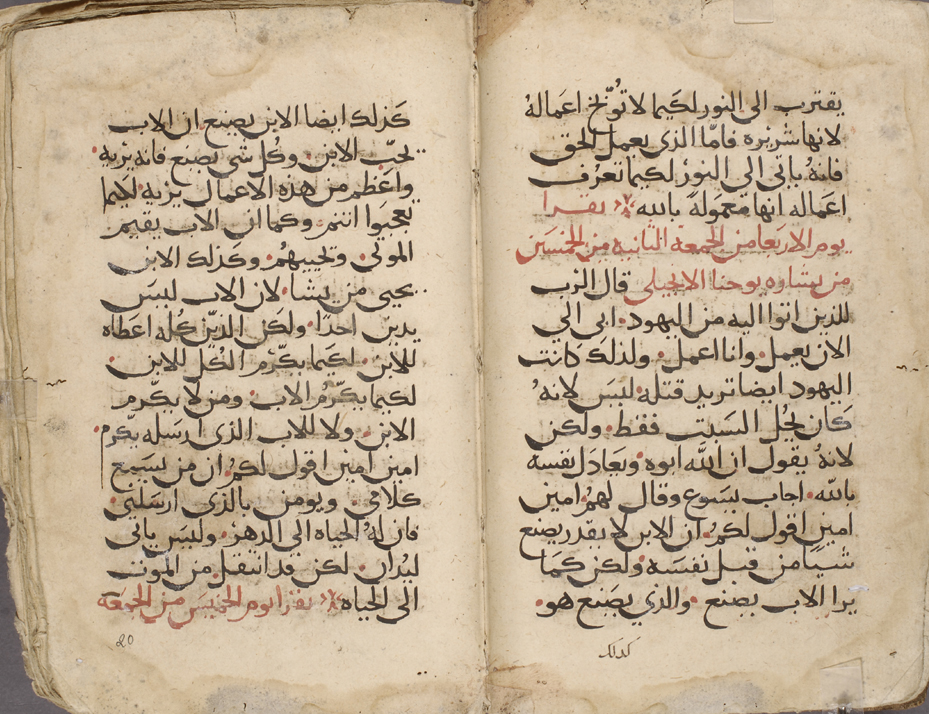 يقترب الى النور لكيما لا تُوبّخ اعماله
لانها شريره فامّا الذى يعمل الحق
فانهُ ياتى الى النور لكيما تعرف
اعماله انها معمولة بالله يقرا
يوم الاربعا من الجمعه الثانيه من الخمسين
من بشاره يوحنا الانجيلى قال الرب
للذين اتوا اليه من اليهود ابى الي
الان يعمل وانا اعمل ولذلك كانت
اليهود ايضا تريد قتله ليس لانهُ
كان يحُل السبت فقط ولكن
لانهُ يقول ان الله ابوه ويعادل نفسه
بالله اجاب يسوع وقال لهم امين
امين اقول لكم ان الابن لا يقدر يصنع
شيًا من قبل نفسه ولكن كما
يرا الاب يصنع والذي يصنع هو
كذلك
كذلك ايضا الابن يصنع ان الاب
يحبّ الابن وكُل شى يصنع فانه يريه
واعظم من هذه الاعمال يريه لكيما
تعجبوا انتم وكما ان الاب يقيم
الموتى ويحييهُم وكذلك الابن
يحيى من يشا لان الاب ليس
يدين احدًا ولكن الدين كُله اعطاه
للابن لكيما يكرّم الكُل للابن
لكيما يكرّمُ الاب ومن لا يكرّم
الابن ولا للاب الذى ارسله يكرم
امين امين اقول لكم ان من يسمع
كلامى ويومن بالذى ارسلنى
فان لهُ الحياه الي الدهر وليس ياتى
ليُدان لكن قد انتقل من الموت
الى الحياه يقرا يوم الخميس من الجمعة
20